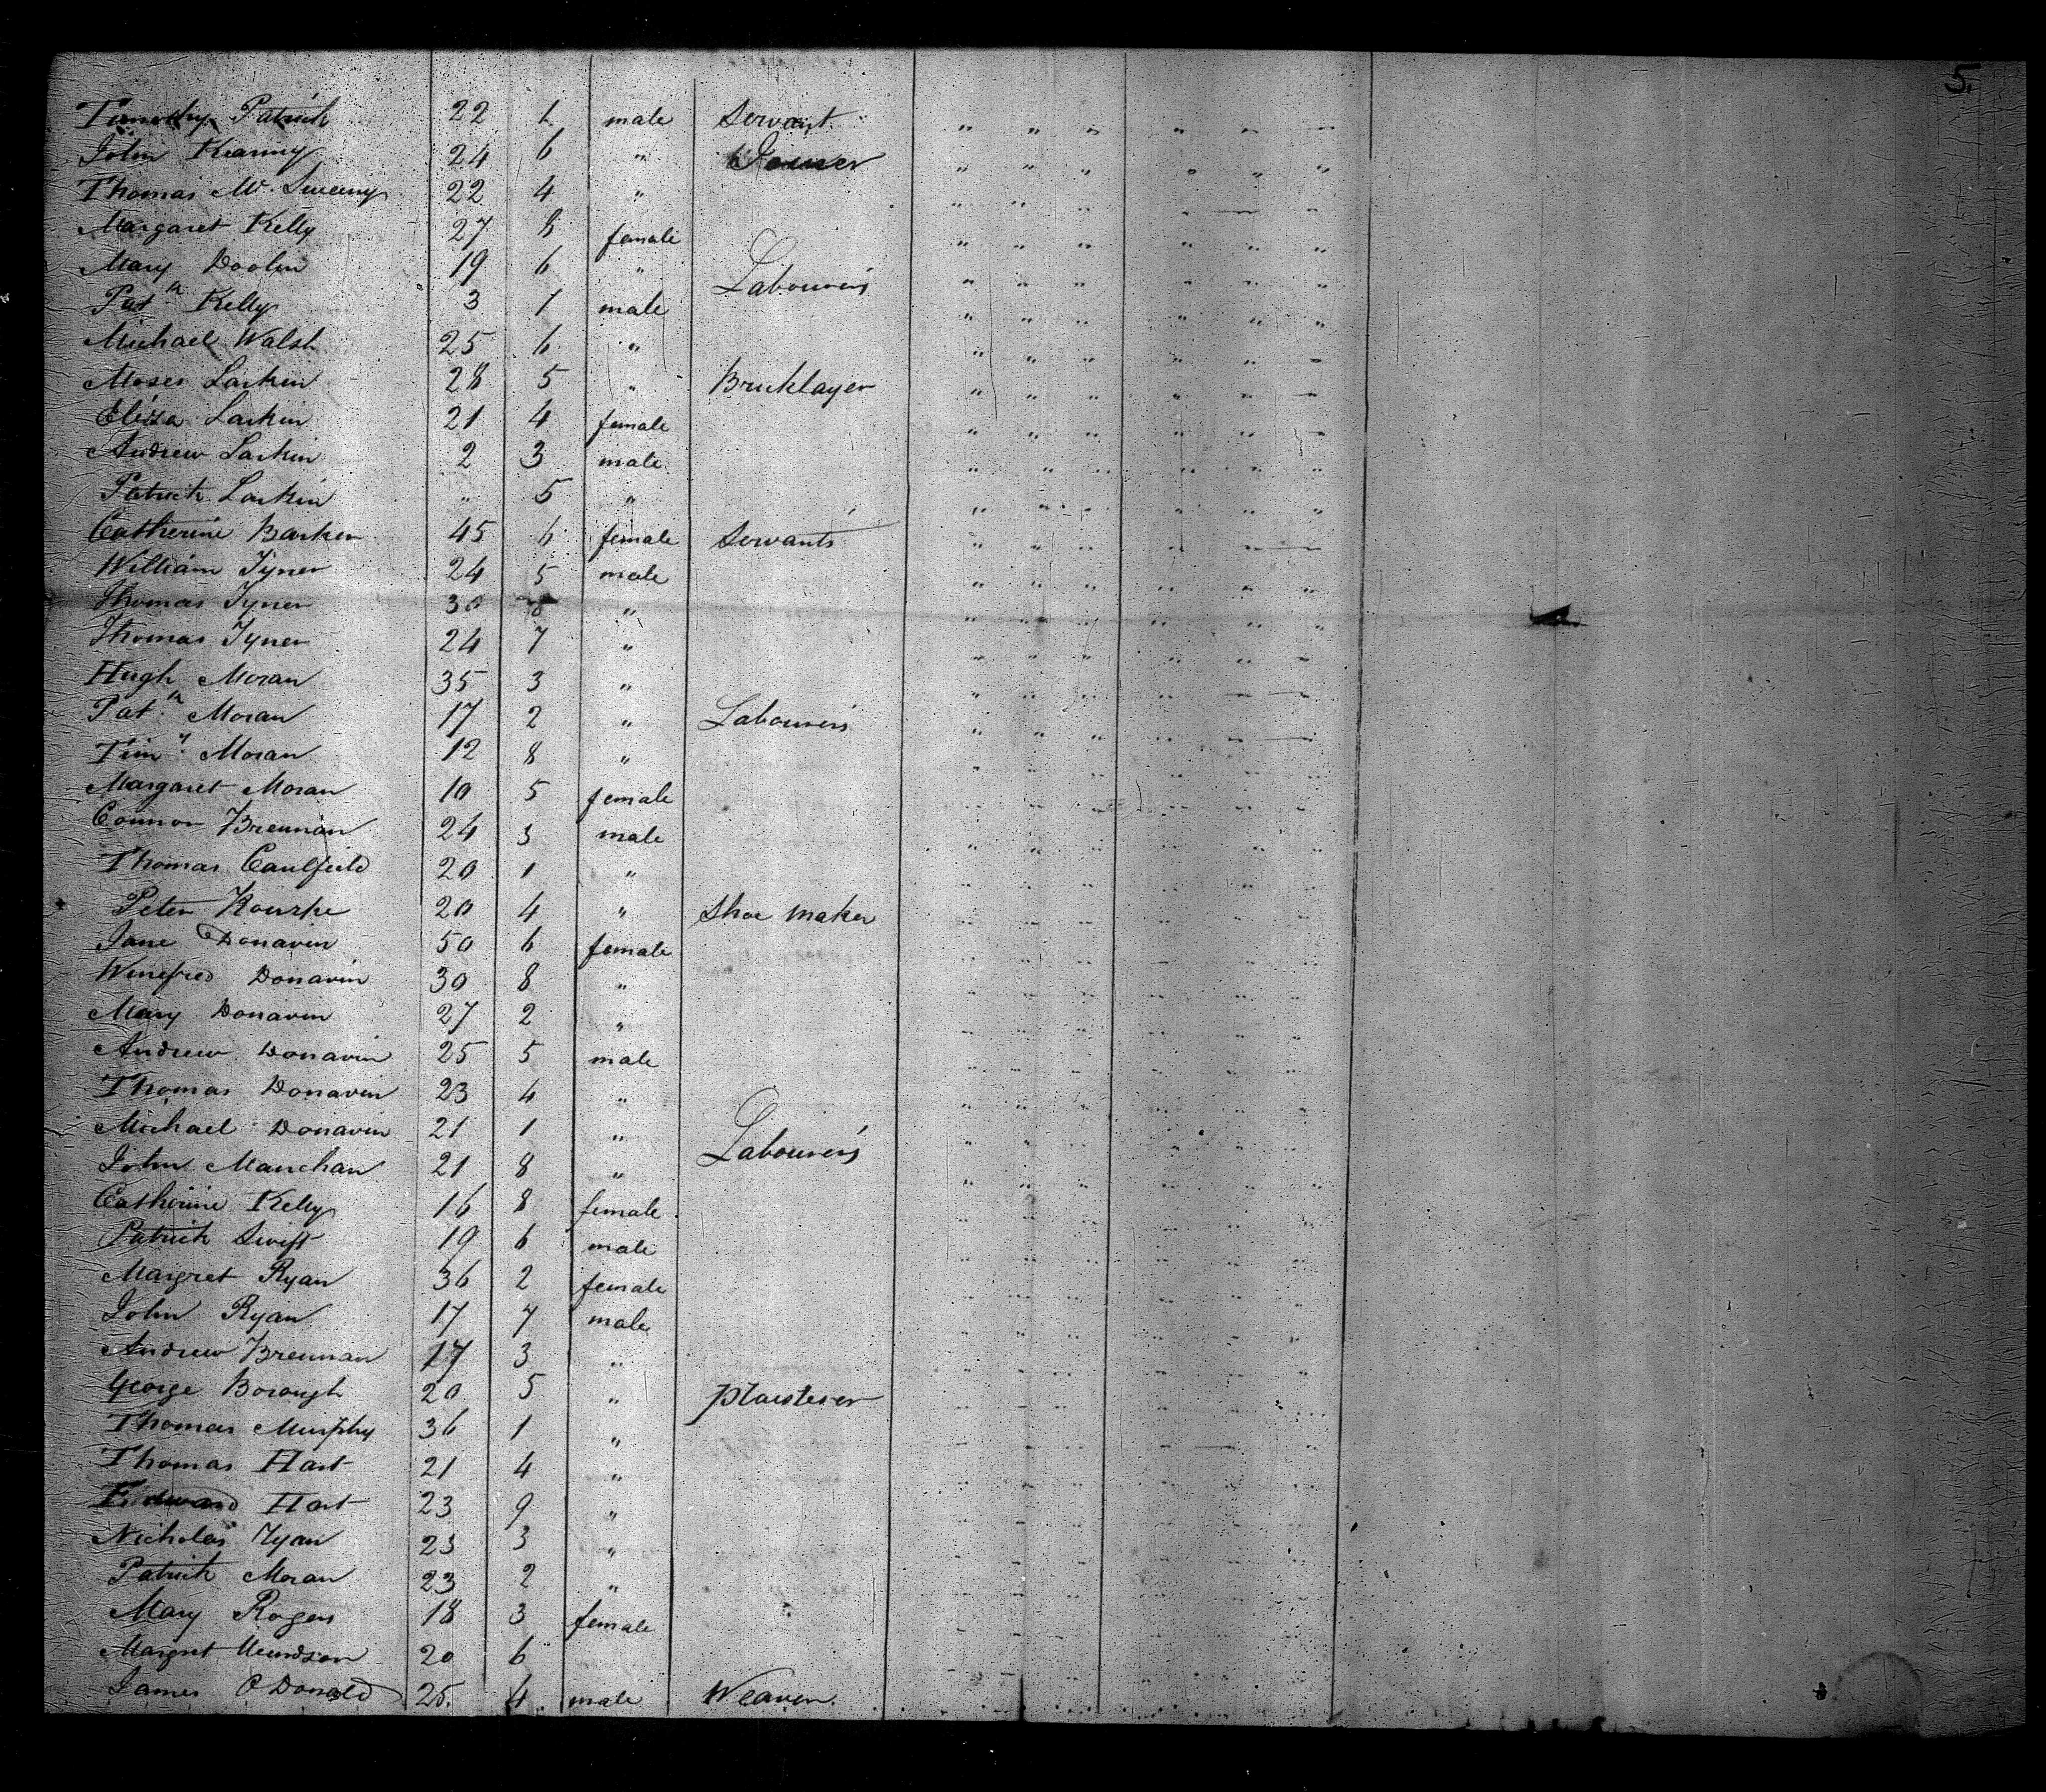 5.
Timothy Patrick 22 6 male Servant " " " " " "
John Kearney 24 6 " " " " " " "
Thomas Mc. Sweeny 22 4 " " " " " " "
Margaret Kelly 27 8 female " " " " " "
Mary Doolin 19 6 " Labourers " " " " " "
Pat.k Kelly 3 1 male " " " " " "
Michael Walsh 25 6 " " " " " " "
Moses Larkin 28 5 " Bricklayer " " " " " "
Eliza Larkin 21 4 female " " " " " "
Andrew Larkin 2 3 male " " " " " "
Patrick Larkin " 5 " " " " " " "
Catherine Barker 45 6 female Servants " " " " " "
William Tyner 24 5 male " " " " " "
Thomas Tyner 30 8 " " " " " " "
Thomas Tyner 24 7 " " " " " " "
Hugh Moran 35 3 " " " " " " "
Pat.k Moran 17 2 " Labourers " " " " " "
Tim.y Moran 12 8 " " " " " " "
Margaret Moran 10 5 female " " " " " "
Connor Brennan 24 3 male " " " " " "
Thomas Caulfield 20 1 " " " " " " "
Peter Rourke 20 4 " Shoe maker " " " " " "
Jane Donavin 50 6 female " " " " " "
Winefred Donavin 30 8 " " " " " " "
Mary Donavin 27 2 " " " " " " "
Andrew Donavin 25 5 male " " " " " "
Thomas Donavin 23 4 " " " " " " "
Michael Donavin 21 1 " " " " " " "
John Manchan 21 8 " Labourers " " " " " "
Catherine Kelly 16 8 female " " " " " "
Patrick Swift 19 6 male " " " " " "
Margret Ryan 36 2 female " " " " " "
John Ryan 17 7 male " " " " " "
Andrew Brennan 17 3 " " " " " " "
George Borough 20 5 " plaisterer " " " " " "
Thomas Murphy 36 1 " " " " " " "
Thomas Hart 21 4 " " " " " " "
Edward Hart 23 9 " " " " " " "
Nicholas Ryan 23 3 " " " " " " "
Patrick Moran 23 2 " " " " " " "
Mary Rogers 18 3 female " " " " " "
Margret 20 6 " " " " " "
James O Donald 25. 4 male Weaver. " " " " " "